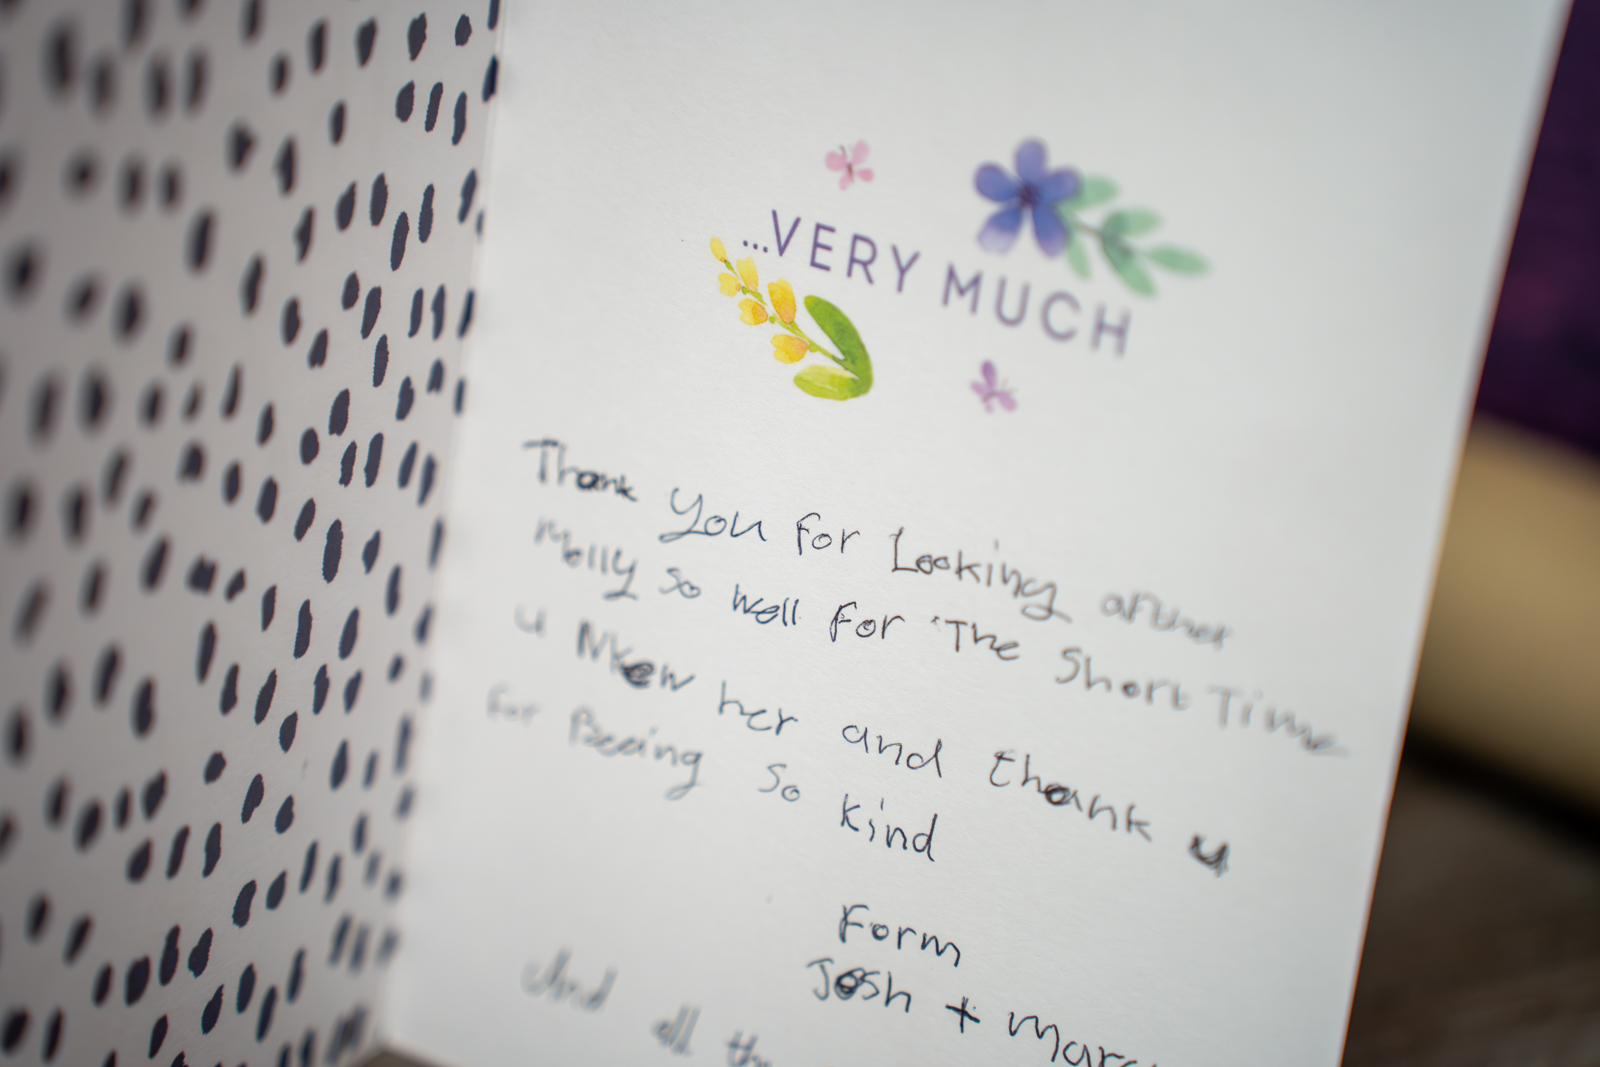 ...VERY MUCH
Thank You For Looking after
Molly so well For The Short Time
u Nkew her and thank u
For Beeing so kind
Form
Josh +
And all